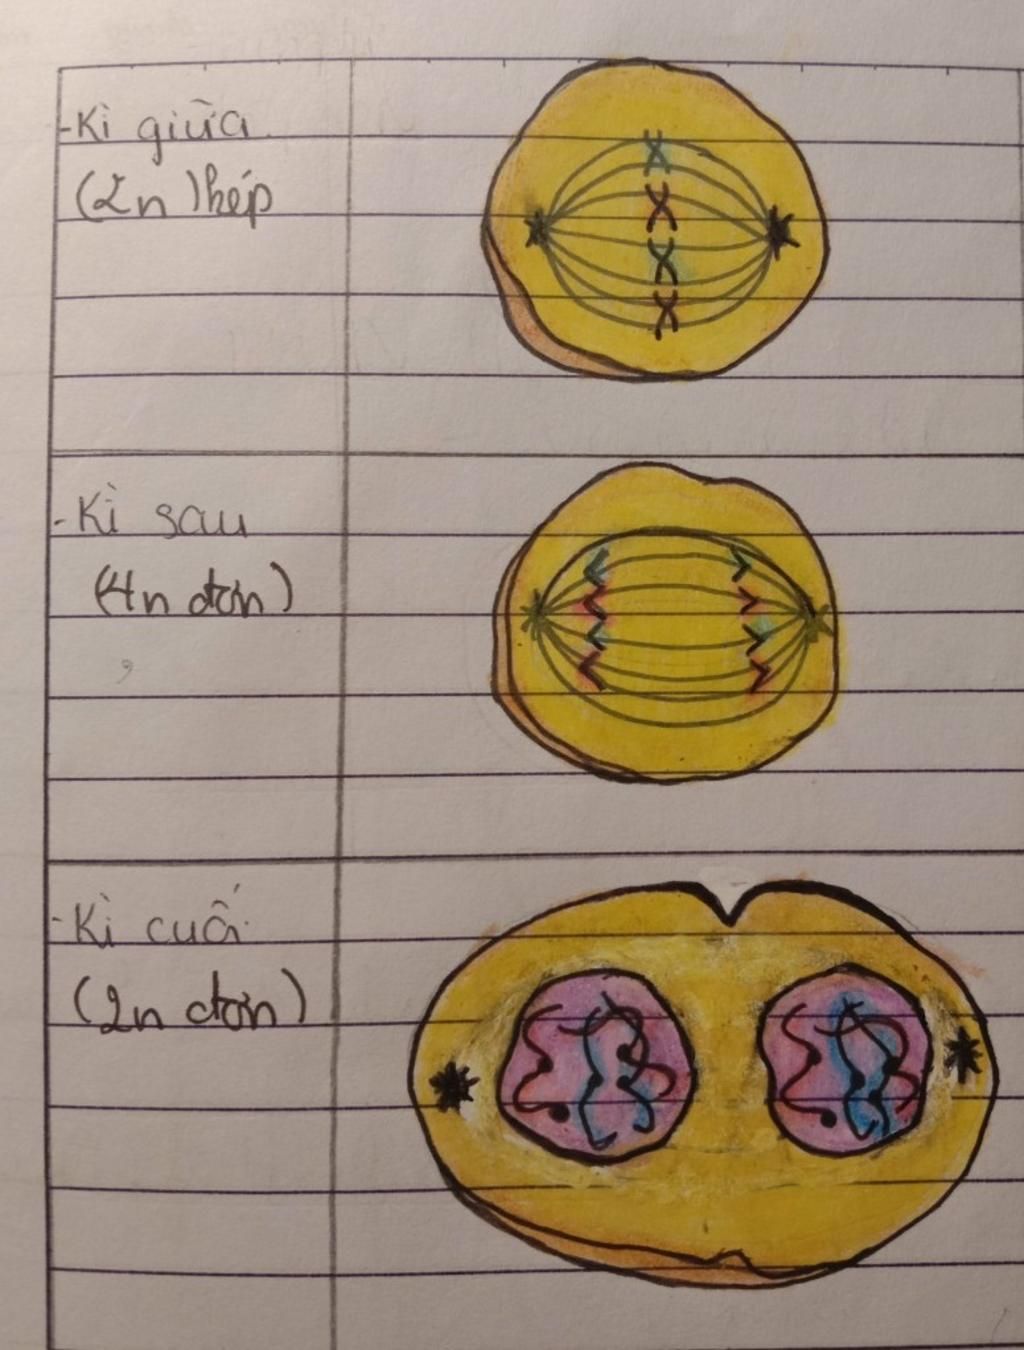 - Kì giữa
(2n) kép
- Kì sau
(4n đơn)
- Kì cuối
(2n đơn)